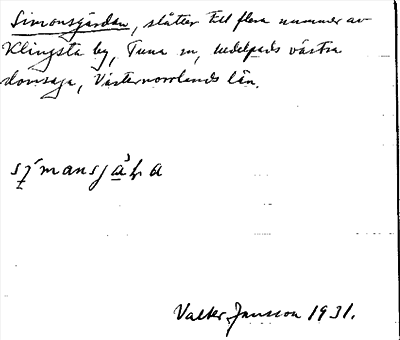 Simonsgärdan, slåtter till flera nummer av
Klingsta by, Tuna sn, Medelpads västra
domsaga, Västernorrlands län.
Valter Jansson 1931.